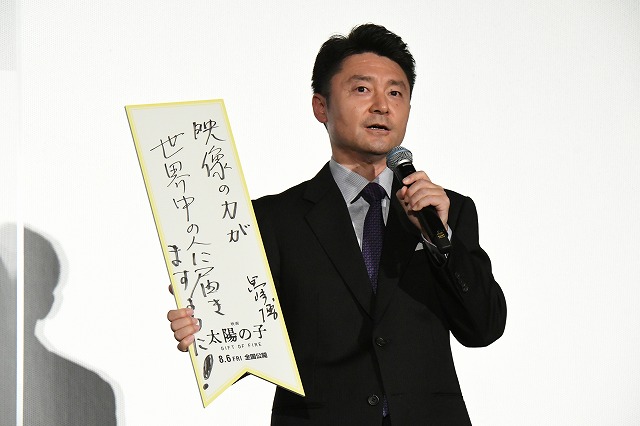 映像の力が
世界中の人に届き
ますように!!
映画
太陽の子
GIFT OF FIRE
8.6 FRI 全国公開